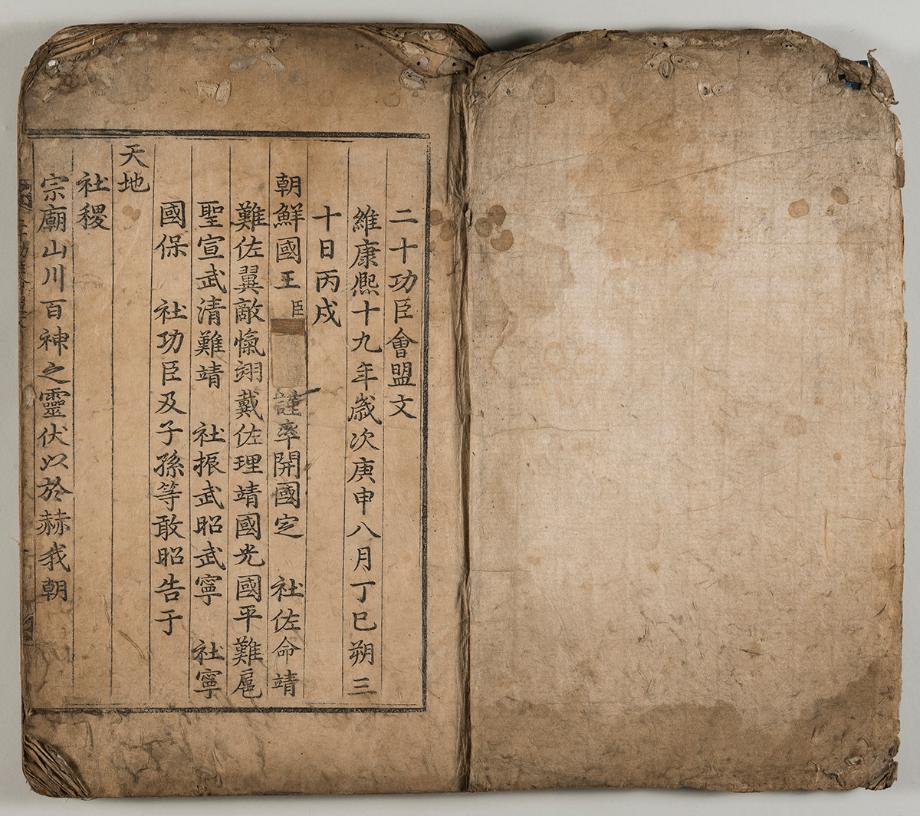 二十功臣會盟文
維康熈十九年歳次庚申八月丁巳朔三
十日丙戌
朝鮮國王臣 謹率開國定 社佐命靖
難佐翼敵愾翊戴佐理靖國光國平難扈
聖宣武清難靖 社振武昭武寧 社寧
國保 社功臣及子孫等敢昭告于
天地
社稷
宗廟山川百神之靈伏以於赫我朝